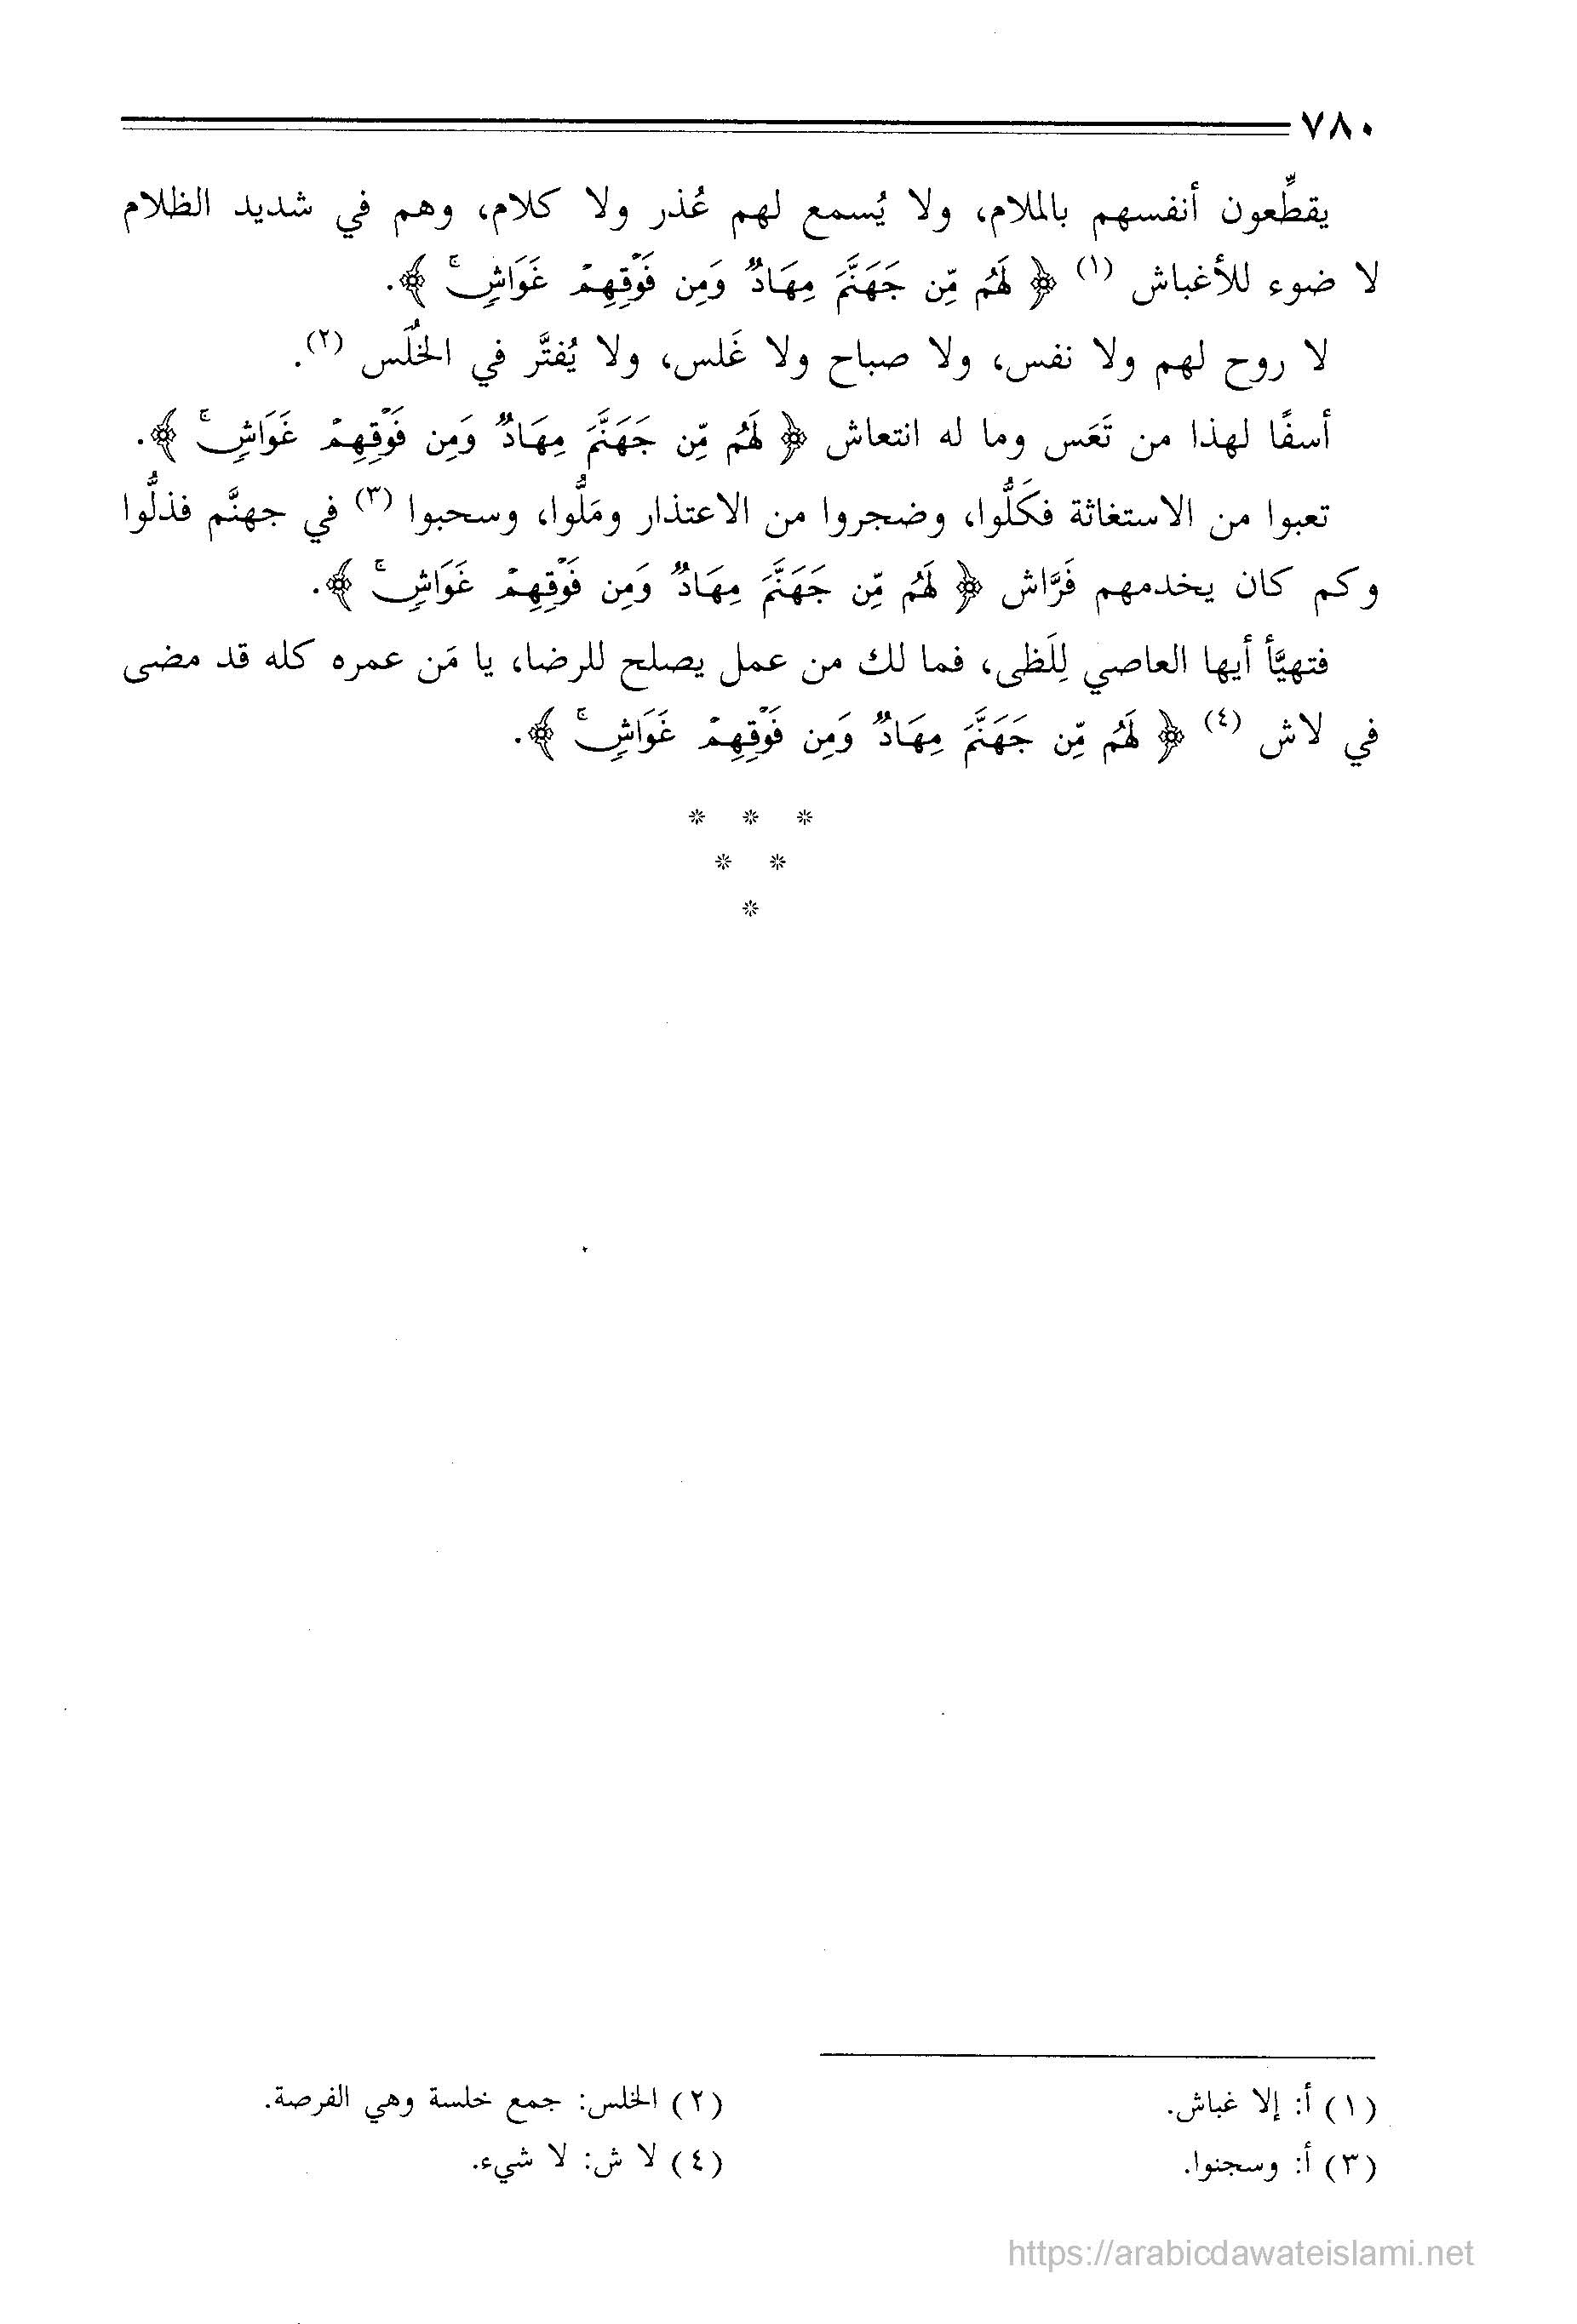 ٧٨٠
يقطِّعون أنفسهم بالملام، ولا يُسمع لهم عُذر ولا كلام، وهم في شديد الظلام
لا ضوء للأغباش (١) ﴿ لَهُم مِّن جَهَنَّمَ مِهَادٌ وَمِن فَوْقِهِمْ غَوَاشٍ ۚ ﴾.
لا روح لهم ولا نفس، ولا صباح ولا غَلس، ولا يُفتَّر في الخُلَس (٢).
أسفًا لهذا من تَعَس وما له انتعاش ﴿ لَهُم مِّن جَهَنَّمَ مِهَادٌ وَمِن فَوْقِهِمْ غَوَاشٍ ۚ ﴾.
تعبوا من الاستغاثة فكَلُّوا، وضجروا من الاعتذار ومَلُّوا، وسحبوا (٣) في جهنَّم فذلُّوا
وكم كان يخدمهم فَرَّاش ﴿ لَهُم مِّن جَهَنَّمَ مِهَادٌ وَمِن فَوْقِهِمْ غَوَاشٍ ۚ ﴾.
فتهيَّأ أيها العاصي لِلَظى، فما لك من عمل يصلح للرضا، يا مَن عمره كله قد مضى
في لاش (٤) ﴿ لَهُم مِّن جَهَنَّمَ مِهَادٌ وَمِن فَوْقِهِمْ غَوَاشٍ ۚ ﴾.
* * *
* *
*
(١) أ: إلا غباش. (٢) الخلس: جمع خلسة وهي الفرصة.
(٣) أ: وسجنوا. (٤) لا ش: لا شيء.
https://arabicdawateislami.net